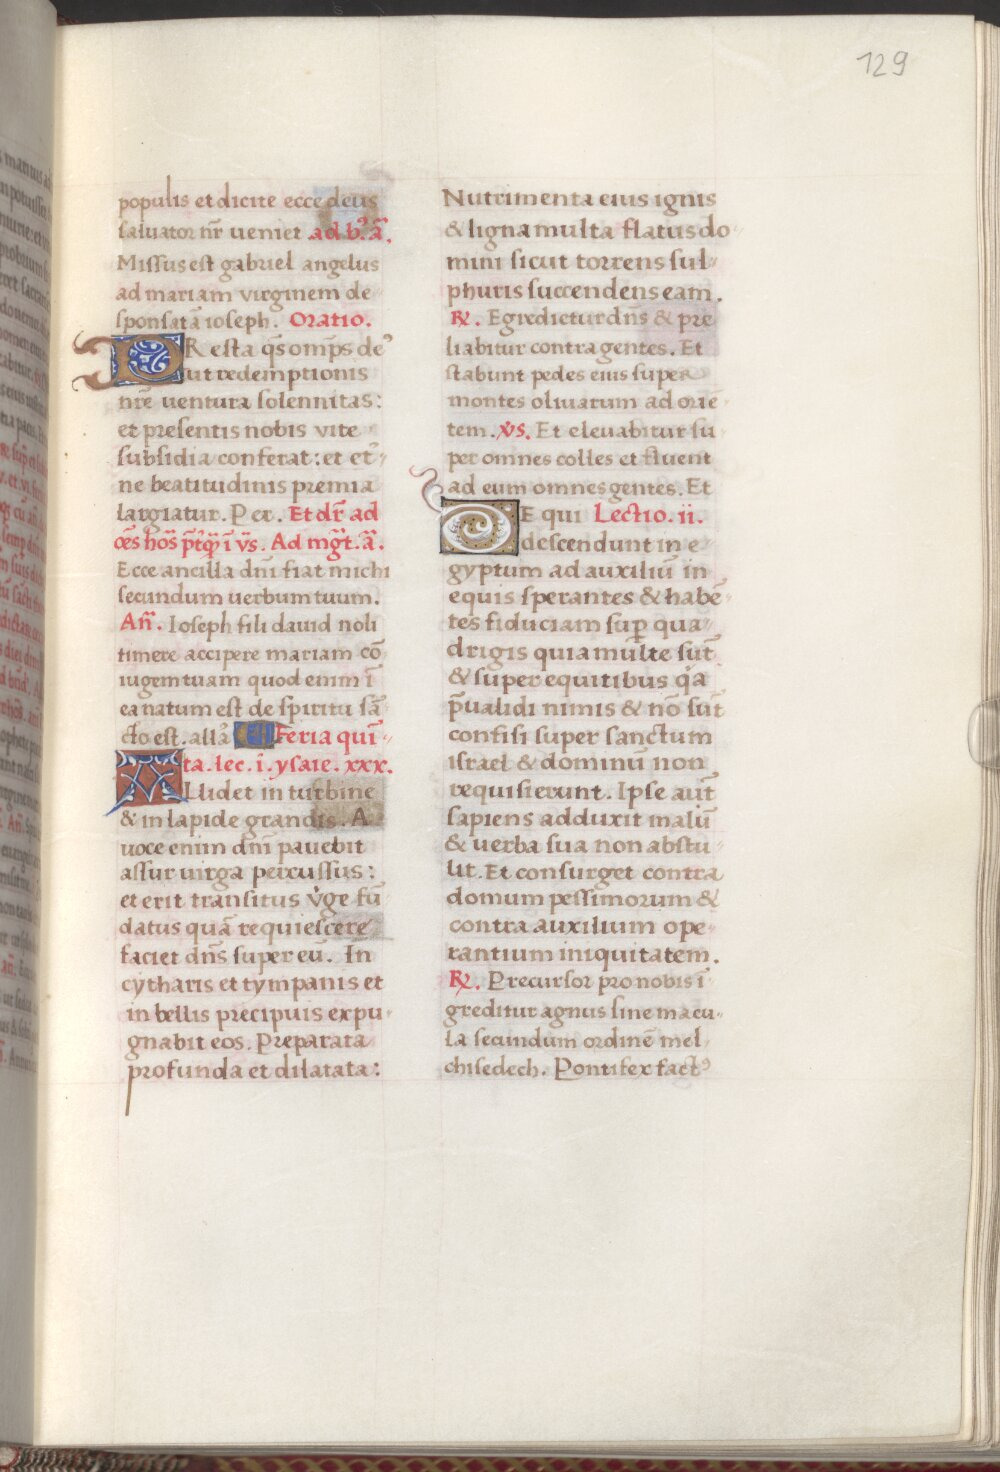 129
populis et dicite ecce deus
saluator nr̄ veniet ad b.ᵃ ā.
Missus est gabriel angelus
ad mariam virginem de
sponsatā ioseph. Oratio.
PResta qs̄ omp̄s de⁹
ut redemptionis
nrē ventura solennitas:
et presentis nobis vite
subsidia conferat: et et⁹
ne beatitudinis premia
largiatur. Per. Et dr̄ ad
oēs hōs p̄tq̄ ī v̄s. Ad mgt̄. ā.
Ecce ancilla dn̄i fiat michi
secundum uerbum tuum.
An̄. Ioseph fili dauid noli
timere accipere mariam cō
iugem tuam quod enim ī
ea natum est de spiritu sā
cto est. allā Feria quī
ta. lec. i. ysaie. xxx.
ALlidet in turbine
& in lapide grandis. A
uoce enim dn̄i pauebit
assur uirga percussus:
et erit transitus v̊ge fū
datus quā requiescere
faciet dn̄s super eū. In
cytharis et tympanis et
in bellis precipuis expu
gnabit eos. Preparata
profunda et dilatata:
Nutrimenta eius ignis
& ligna multa flatus do
mini sicut torrens sul
phuris succendens eam.
℞. Egredietur dn̄s & pre
liabitur contra gentes. Et
stabunt pedes eius super
montes oliuarum ad oriē
tem. v̊s. Et eleuabitur su
per omnes colles et fluent
ad eum omnes gentes. Et
E qui Lectio. ii.
descendunt in e
gyptum ad auxiliū in
equis sperantes & habē
tes fiduciam sup̄ qua
drigis quia multe sūt
& super equitibus q̊a
p̄ualidi nimis & nō sūt
confisi super sanctum
israel & dominū non
requisierunt. Ipse aūt
sapiens adduxit malū
& uerba sua non abstu
lit. Et consurget contra
domum pessimorum &
contra auxilium ope
rantium iniquitatem.
℞. Precursor pro nobis ī
greditur agnus sine macu
la secundum ordinē mel
chisedech. Pontifex fact⁹